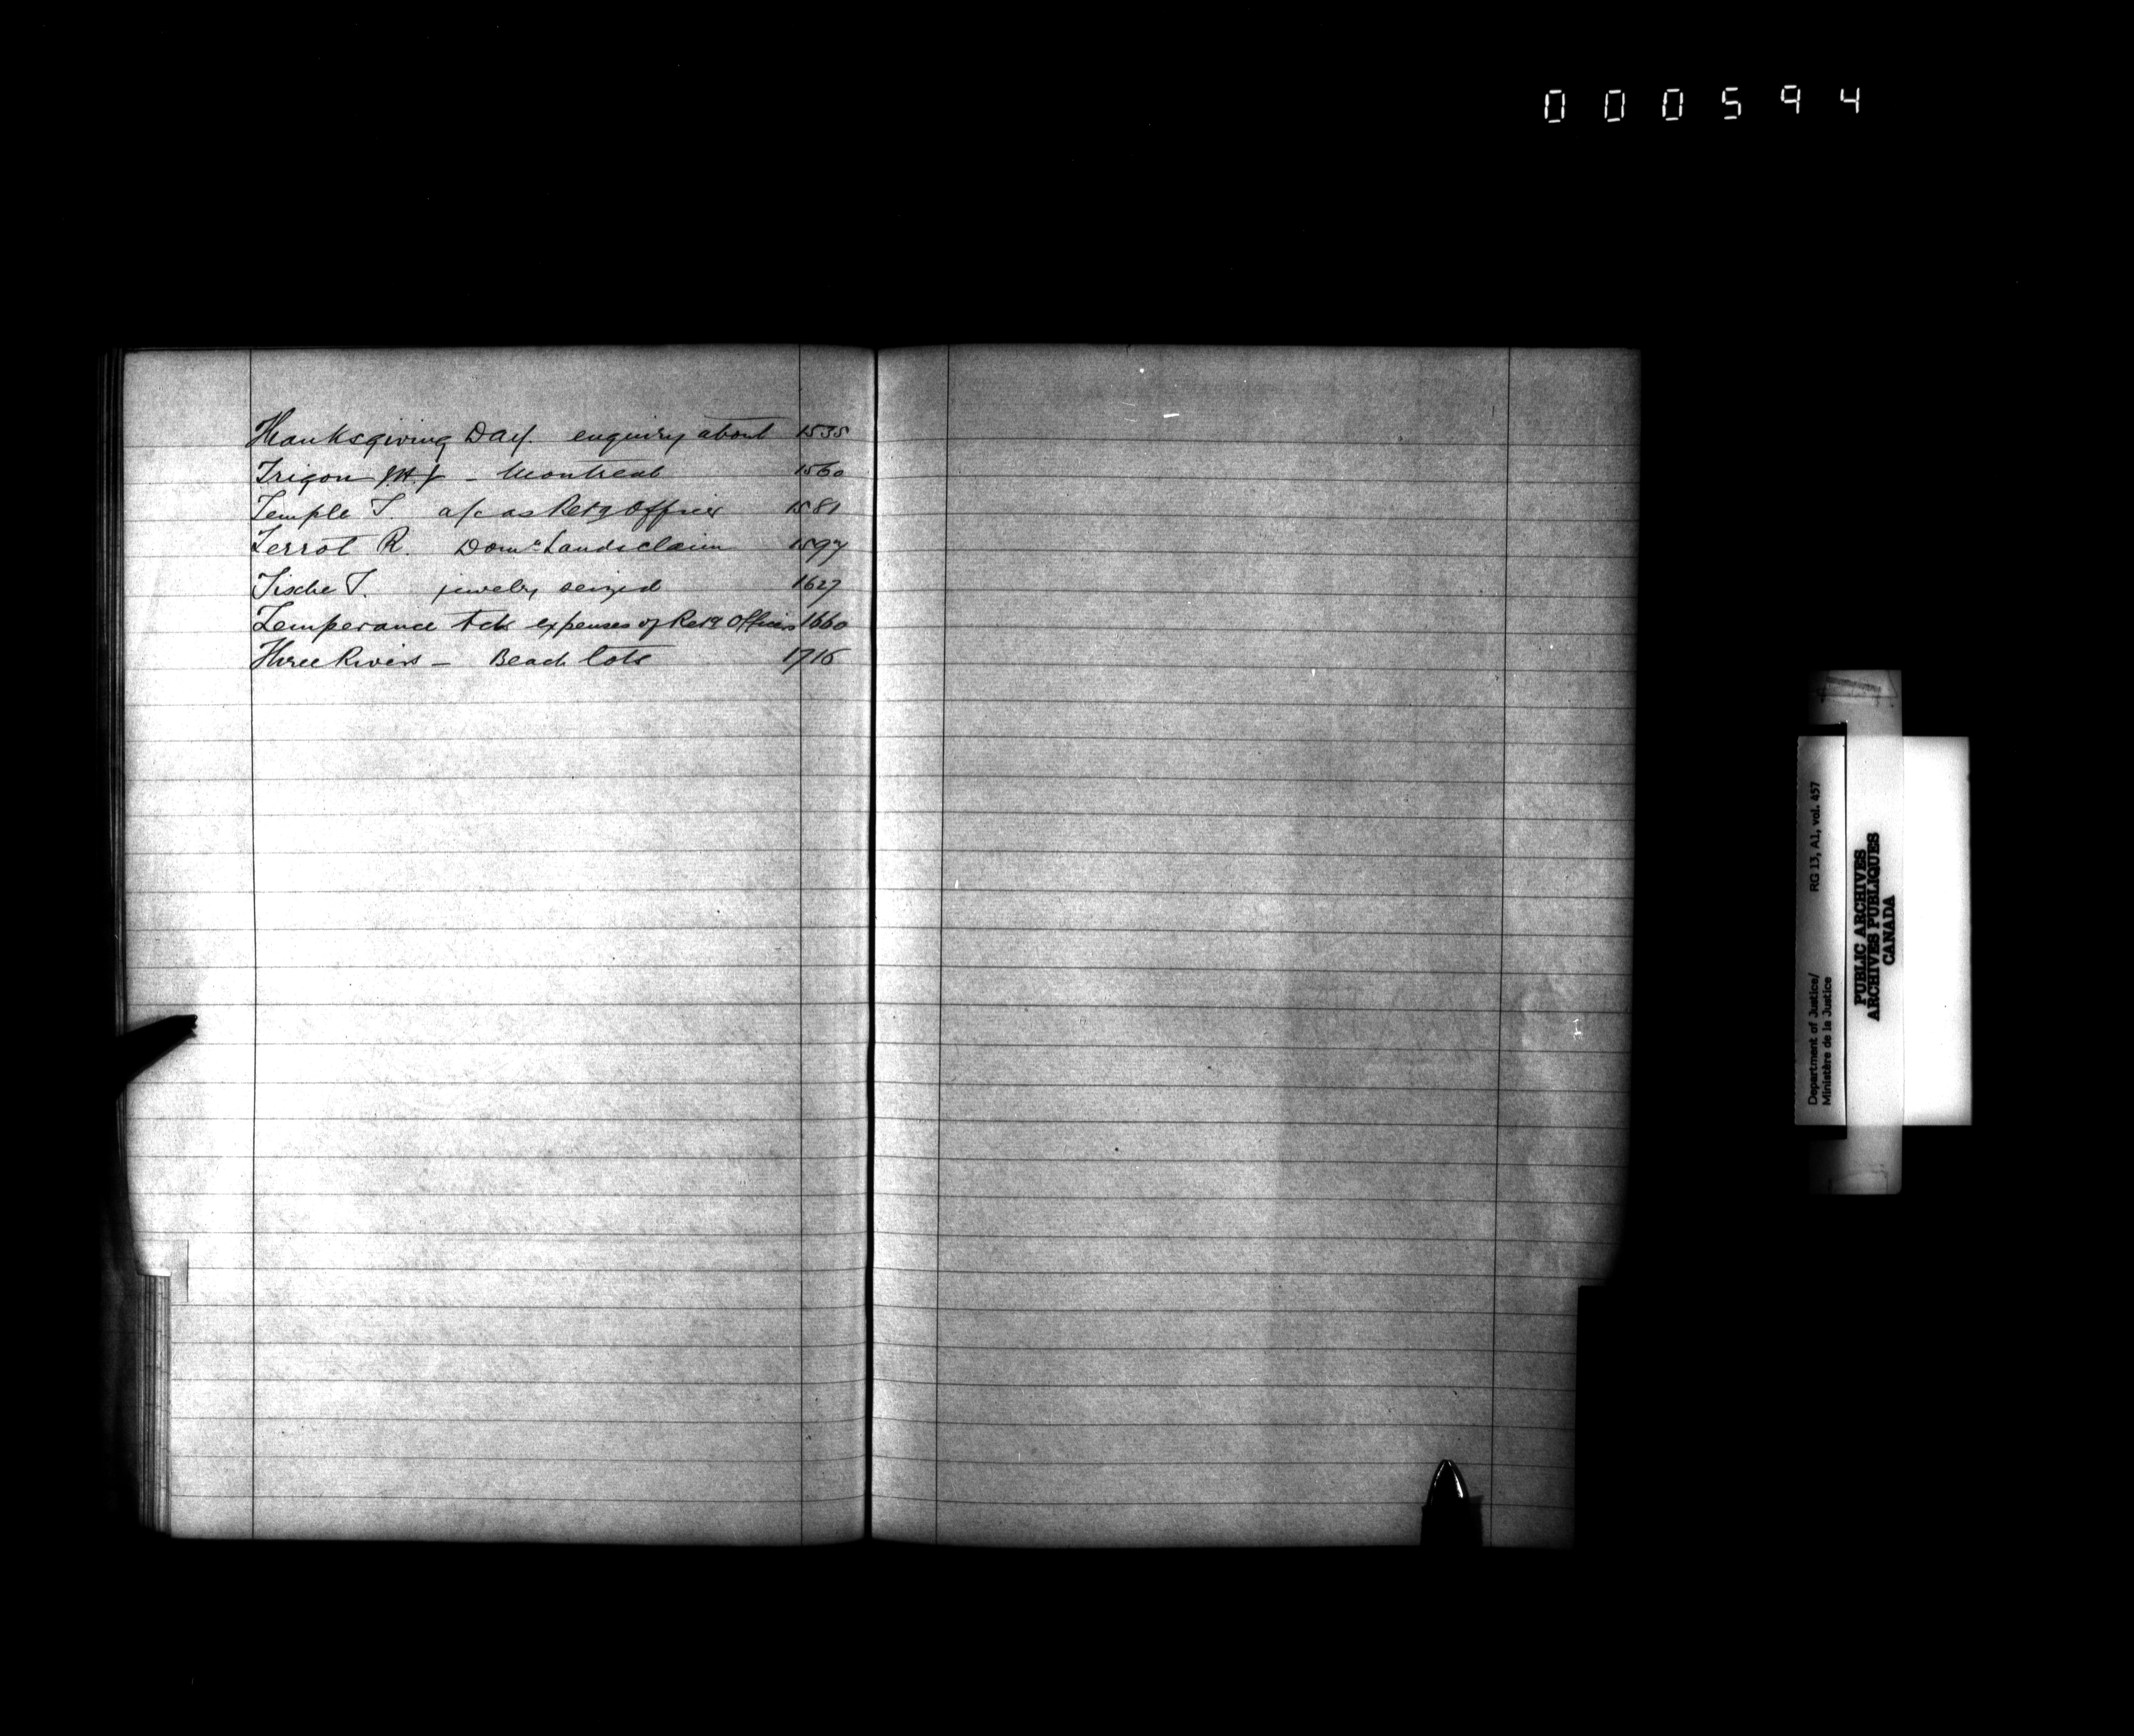 000594
Thanksgiving Day. enquiry about 1535
Trigon - Montreal 1560
Temple T. a/c as Retg Officer 1581
Terrot R. Domn Lands claim 1597
Tische T. jewelry seized 1627
Temperance Act expenses of Retg Officers 1660
Three Rivers - Beach lots 1716
Department of Justice/ RG 13, A1, vol. 457
Ministère de la Justice
PUBLIC ARCHIVES
ARCHIVES PUBLIQUES
CANADA